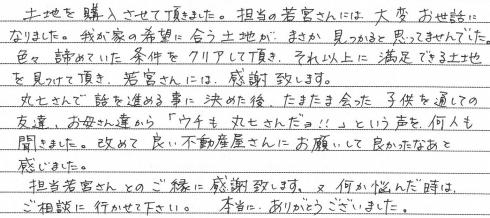 土地を購入させて頂きました。担当の若宮さんには大変お世話に
なりました。我が家の希望に合う土地がまさか見つかると思ってませんでした。
色々諦めていた条件をクリアして頂き、それ以上に満足できる土地
を見つけて頂き、若宮さんには、感謝致します。
丸七さんで話を進める事に決めた後、たまたま会った子供を通しての
友達、お母さん達から「ウチも丸七さんだョ!!」という声を何人も
聞きました。改めて良い不動産屋さんにお願いして良かったなあと
感じました。
担当若宮さんとのご縁に感謝致します。又何か悩んだ時は、
ご相談に行かせて下さい。本当に、ありがとうございました。